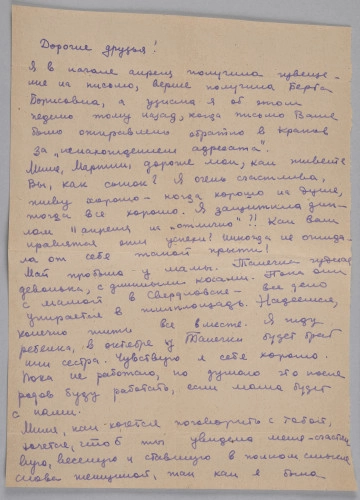 Дорогие друзья!
Я в начале апреля получила извеще-
ние на письмо, вернее получила Берта
Борисовна, а узнала я об этом
неделю тому назад, когда письмо Ваше
было отправлено обратно в Краков
за "ненахождением адресата".
Миля, Мартин, дорогие мои, как живёте
Вы, как сынок? Я очень счастлива,
живу хорошо – когда хорошо на душе,
тогда всё хорошо. Я защитила дип-
лом "на отлично"!! Как Вам
нравятся эти успехи? Никогда не ожида-
ла от себя такой прыти!
Май пробыла у мамы. Танечка чудная
девочка, с длинными косами. Пока они
с мамой в Свердловске – все дело
упирается в жилплощадь. Надеемся,
конечно жить все вместе. Я жду
ребёнка, в октябре у Танечки будет брат
или сестра. Чувствую я себя хорошо.
Пока не работаю, но думаю что после
родов буду работать, если мама будет
с нами.
Миля, как хочется поговорить с тобой,
хочется, чтоб ты увидела меня счастли-
вую, весёлую и ставшую в полном смысле
слова женщиной, так как я была